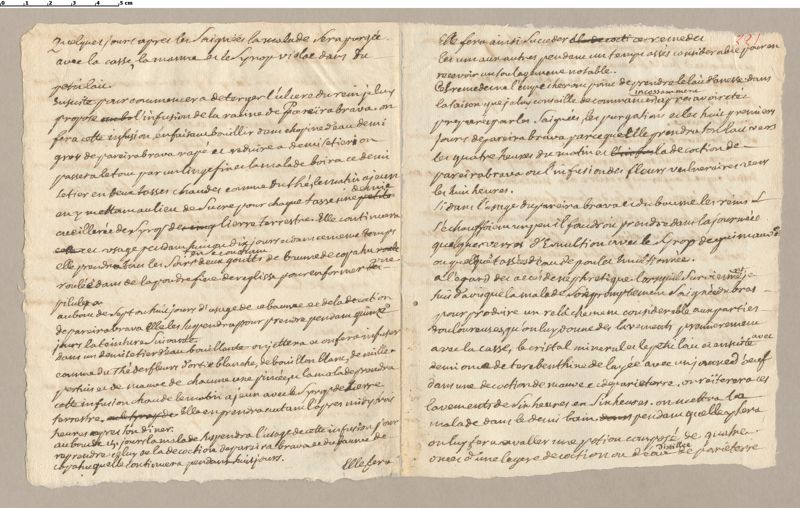 quelques jours apres les Saignées la malade Sera purgée
avec la casse, la manne et le Syrop violat dans du
petit lau.
Ensuite pour commencer a deterger l'ulcere du rein, je luy
propose l'infusion de la racine de Pareira brava. on
fera cette infusion en faisant bouillir dans chopine d'eau demi
gros de pareira brava rapé et reduire a demi setier; on
passera le tout par un linge fin et la malade boira ce demi
setier en deux tasses chaudes comme du thé, le matin a jeun
en y mettant au lieu de Sucre pour chaque tasse une demie
cueillerée de Syrop de lierre terrestre. Elle continuera
cet usage pendant dix jours et dans ce meme temps
elle prendra tous les Soirs deux gouts de baume de copahu
roulée dans de la poudre fine de reglisse pour en former une
pilule.
au bout de Sept ou huit jours d'usage de ce baume et de la decoction
de pareira brava Elle les Suspendra pour prendre pendant quinze
jours la teinture Suivante.
dans un demi setier d'eau bouillante on jettera et on fera infuser
comme du thé des fleurs d'ortie blanche, de bouillon blanc, de mille
pertuis et de mauve de chacune une pincée; la malade prendra
cette infusion chaude le matin a jeun avec le Syrop de Lierre
terrestre. Elle en prendra autant l'apres midy trois
heures apres Son diner.
au bout de 15 jours la malade Suspendra l'usage de cette infusion pour
reprendre celuy de la decoction de pareira brava et du baume de
copahu qu'elle continuera pendant huit jours.
Elle fera
221
Elle fera ainsi Succeder ces remedes
les uns aux autres pendant un temps assés considerable pour en
recevoir un soulagement notable.
Ces remedes ne l'empecheront point de prendre le lait d'anesse dans
la saison que je luy conseille de commencer incessamment apres avoir eté
preparée par les Saignées, les purgations et les huit premiers
jours de pareira brava parce que Elle prendra Son lait vers
les quatre heures du matin et la decoction de
pareira brava ou l'infusion des fleurs vulneraires vers
les huit heures.
Si dans l'usage du pareira brava et du baume les reins
S'echauffoient un peu il faudroit prendre dans la journée
quelques verres d'Emultion avec le Syrop de guimauve
ou quelques tasses d'eau de poulet emultionnée.
a l'egard des accés de nephretique lorsqu'ils Surviennent je
suis d'avis que la malade Soit promptement Saignée du bras
pour produire un relachement considerable aux parties
douloureuses, qu'on luy donne des lavements premierement
avec la casse, le cristal mineral et le petit lau et ensuite avec
demi once de terebenthine delayée avec un jaune d'oeuf
dans une decoction de mauve et de parietaire. on réiterera ces
lavements de Six heures en Six heures. on mettra la
malade dans le demi bain pendant qu'elle y Sera
on luy fera avaller une potion composée de quatre
onces d'une legere decoction ou d'eau distillée de parietaire